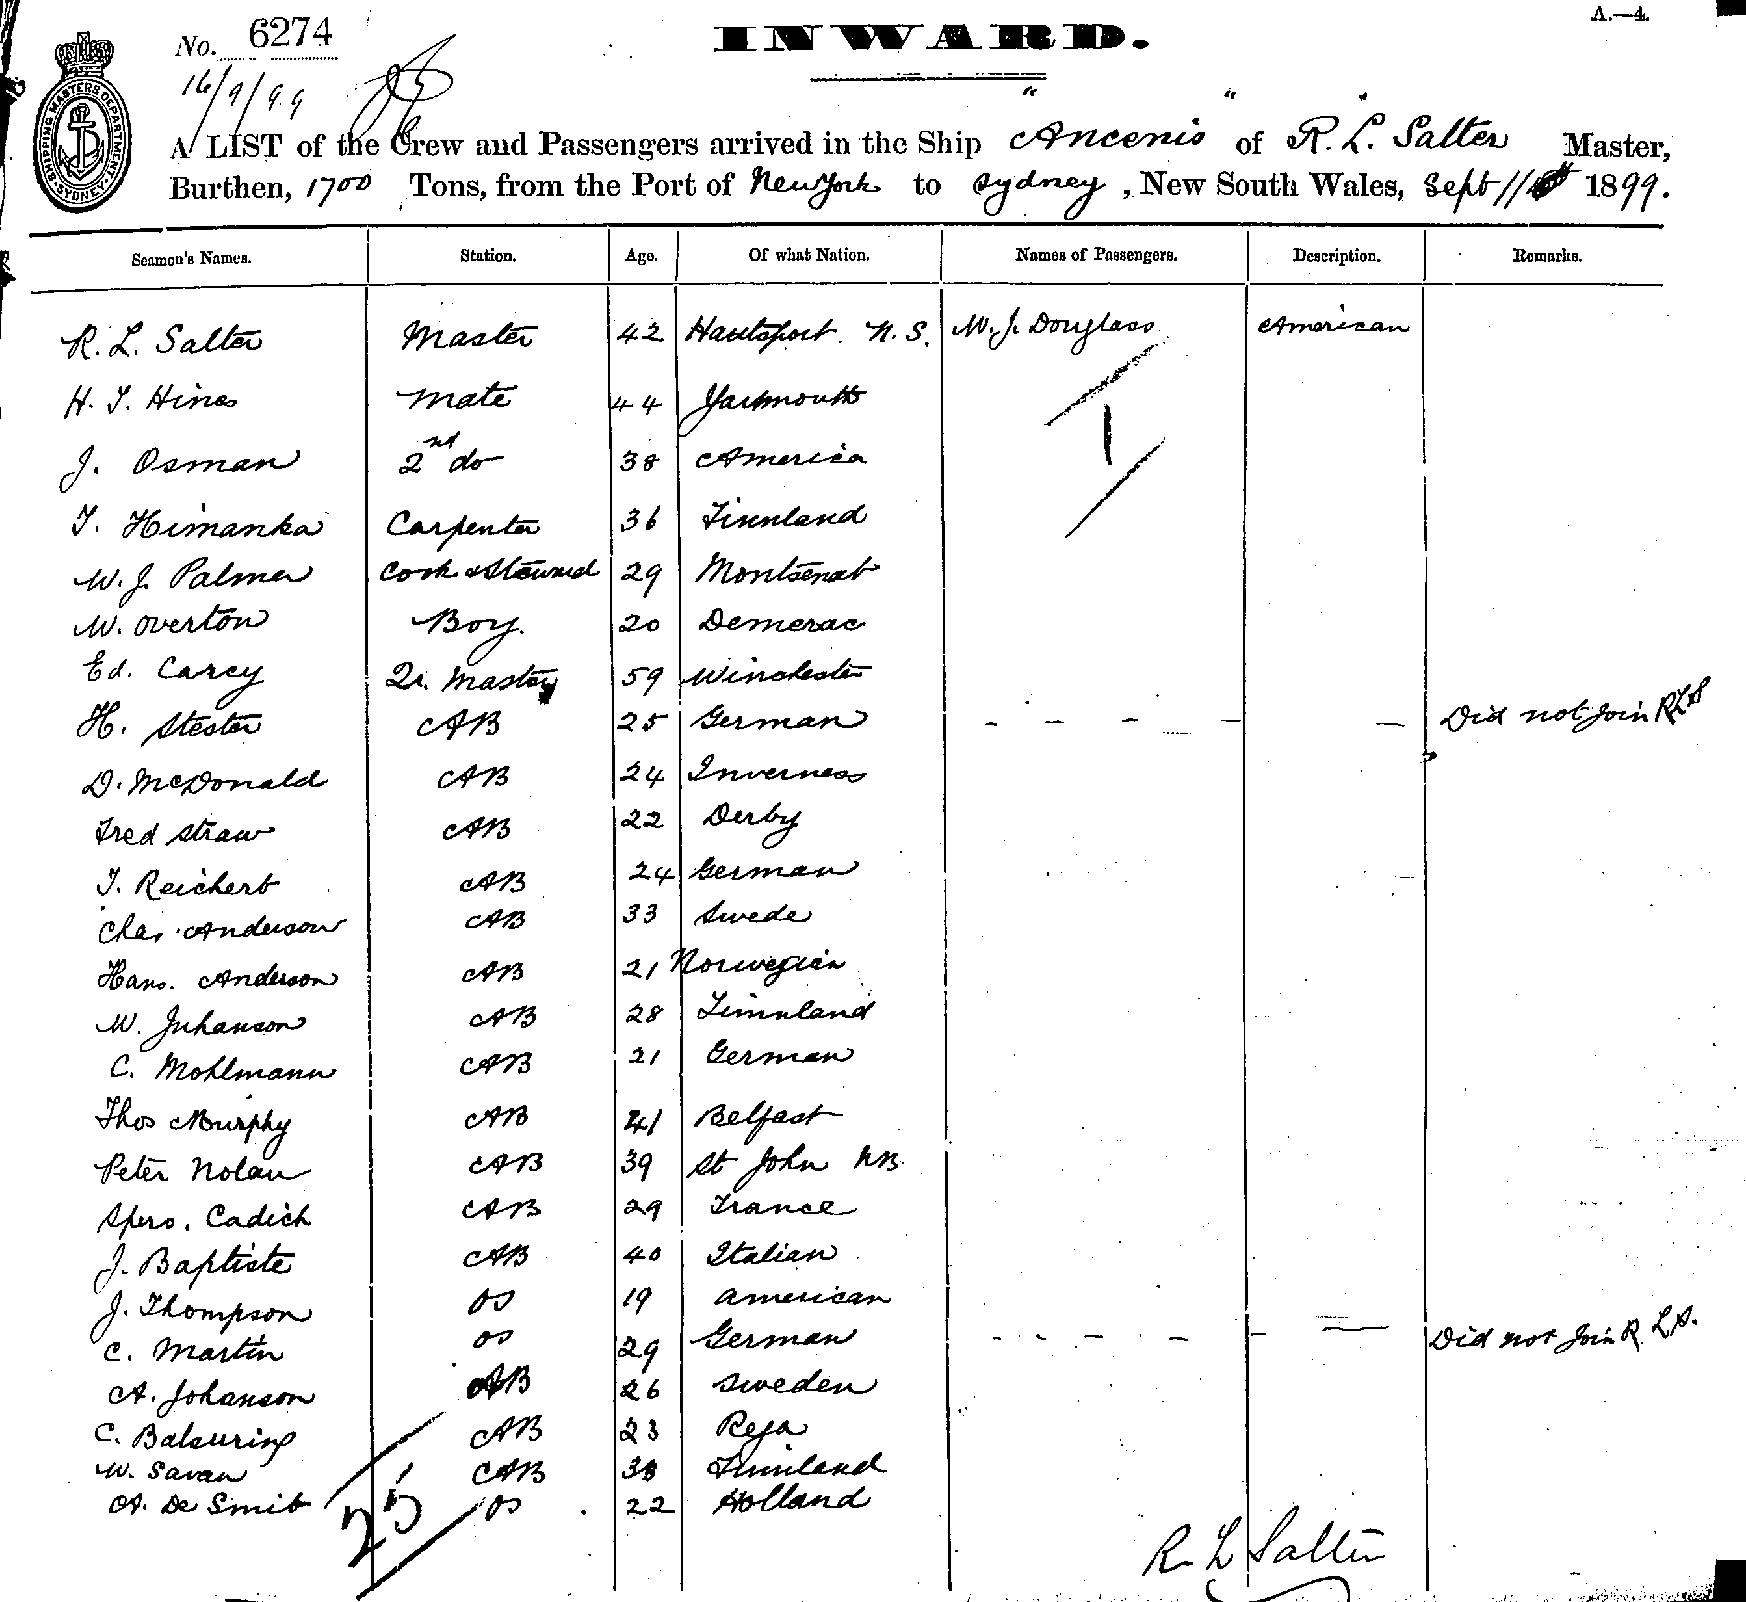 A.—4.
No. 6274
INWARD.
16/9/99
SHIPPING MASTERS DEPARTMENT
A LIST of the Crew and Passengers arrived in the Ship "Ancenis" of R. L. Salter Master,
Burthen, 1700 Tons, from the Port of New York to Sydney, New South Wales, Sept 11 1899.
Seamen's Names. Station. Age. Of what Nation. Names of Passengers. Description. Remarks.
R. L. Salter Master 42 Hantsport N.S. W. J. Douglass American
H. T. Hines Mate 44 Yarmouth
J. Osman 2nd do 38 America
1
T. Himanka Carpenter 36 Finnland
W. J. Palmer Cook & Steward 29 Montserat
W. Overton Boy. 20 Demerac
Ed. Carey Qr. Master 59 Winchester
H. Stester AB 25 German - - - - - Did not join RLS
D. McDonald AB 24 Inverness
Fred Straw AB 22 Derby
T. Reichert AB 24 German
Chas. Anderson AB 33 Swede
Hans. Anderson AB 21 Norwegian
W. Juhanson AB 28 Finnland
C. Mohlmann AB 21 German
Thos Murphy AB 41 Belfast
Peter Nolan AB 39 St John N.B.
Spero. Cadich AB 29 France
J. Baptiste AB 40 Italian
J. Thompson OS 19 American
C. Martin OS 29 German - - - - - - Did not Join R. L.S.
A. Johanson AB 26 Sweden
C. Balsuring AB 23 Rega
W. Savan AB 38 Finnland
A. De Smit OS 22 Holland
25
R L Salter